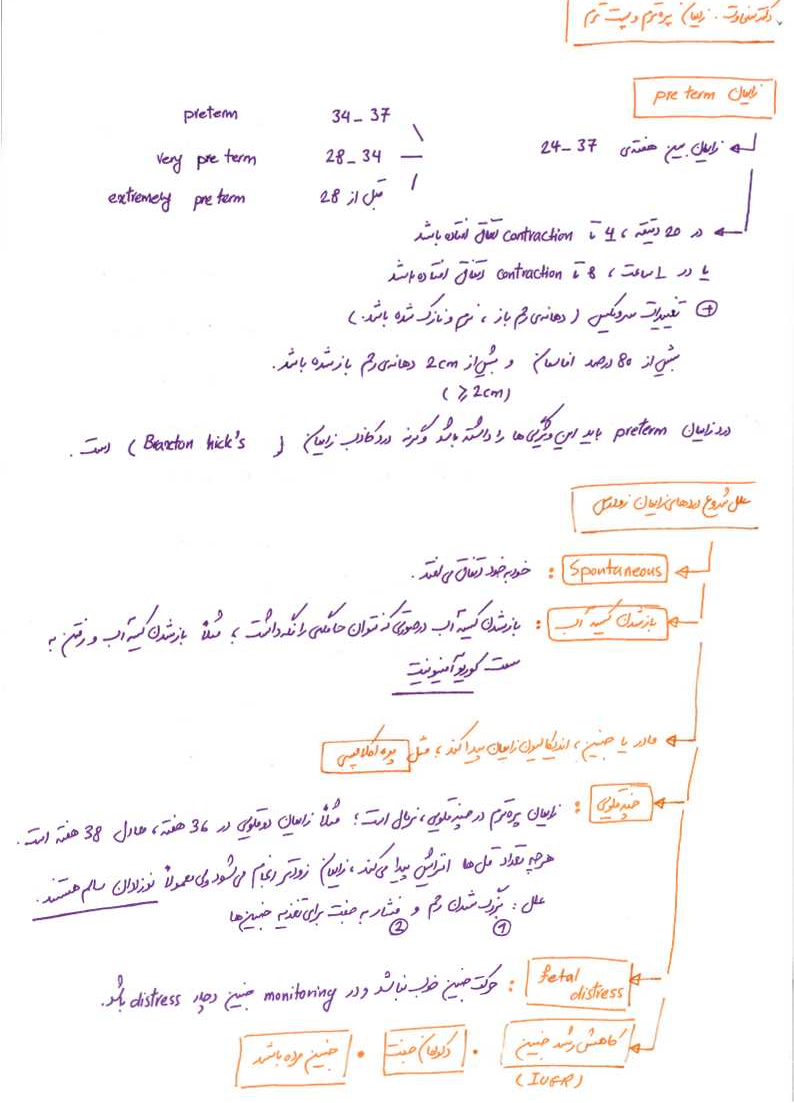 دکتر سعادت . زایمان پره‌ترم و پست ترم
زایمان pre term
زایمان بین هفته‌ی 37 – 24
34 – 37 preterm
28 – 34 very pre term
قبل از 28 extremely pre term
در 20 دقیقه ، 4 تا contraction اتفاق افتاده باشد
یا در 1 ساعت ، 8 تا contraction اتفاق افتاده باشد
+ تغییرات سرویکس ( دهانه‌ی رحم باز ، نرم و نازک شده باشد. )
بیش از 80 درصد افاسمان و بیش از 2cm دهانه‌ی رحم باز شده باشد.
( ⩾ 2cm )
درد زایمان preterm باید این ویژگی ها را داشته باشد وگرنه درد کاذب زایمان ( Braxton hick's ) است .
علل شروع دردهای زایمان زودرس
Spontaneous : خودبه خود اتفاق می افتد .
باز شدن کیسه آب : باز شدن کیسه آب درصورتی که نتوان حاملگی را نگه داشت ؛ مثلاً باز شدن کیسه آب و رفتن به
سمت کوریوآمنیونیت
مادر یا جنین ، اندیکاسیون زایمان پیدا کند ؛ مثل پره اکلامپسی
چندقلویی : زایمان پره‌ترم در چندقلویی ، نرمال است ؛ مثلاً زایمان دوقلویی در 36 هفته ، معادل 38 هفته است .
هرچه تعداد قل ها افزایش پیدا می‌کند ، زایمان زودتر انجام می‌شود ولی معمولاً نوزادان سالم هستند .
علل : بزرگ شدن رحم و فشار به جفت برای تغذیه جنین ها
① ②
fetal distress : حرکت جنین خوب نباشد و در monitoring جنین دچار distress باشد.
کاهش رشد جنین . دکولمان جفت . جنین مرده باشد
( IUGR )